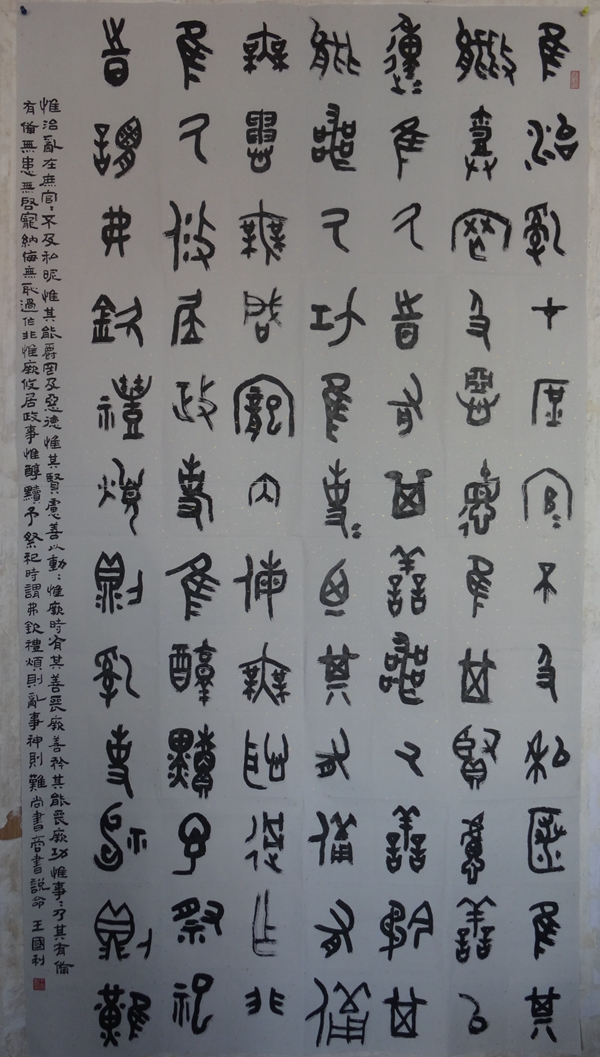 隹治亂才庶官=不及私昵隹其
能爵罔及惡德隹其賢慮善以
動=隹氒時有其善喪氒善矜其
能喪氒功隹事=乃其有備有備
無患無啟寵內侮無恥過作非
隹氒攸居政事隹醇黷予祭祀
時謂弗欽禮煩則亂事神則難
惟治亂在庶官=不及私昵惟其能爵罔及惡德惟其賢慮善以動=惟厥時有其善喪厥善矜其能喪厥功惟事=乃其有備
有備無患無啓寵納侮無恥過作非惟厥攸居政事惟醇黷予祭祀時謂弗欽禮煩則亂事神則難尚書商書說命 王國利